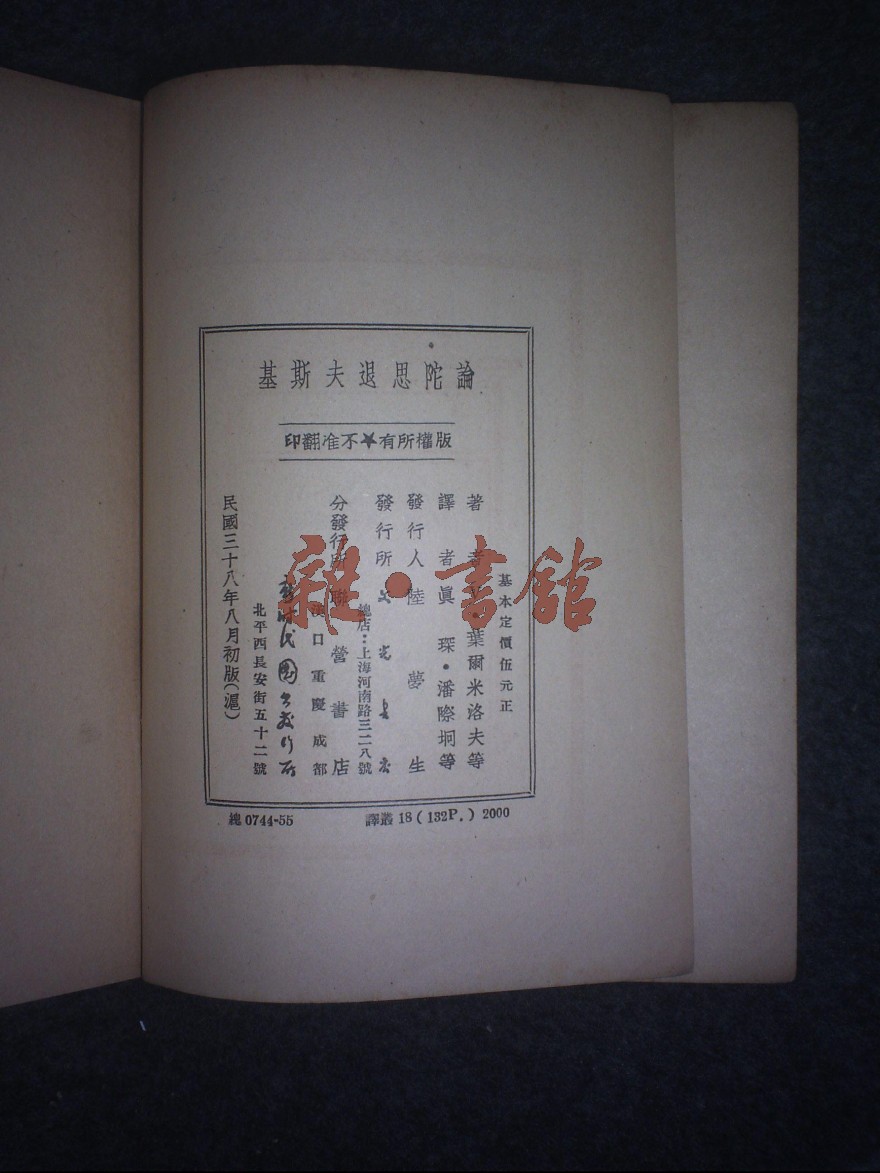 論陀思退夫斯基
版權所有★不准翻印
基本定價伍元正
著者 葉爾米洛夫等
譯者眞琛·潘際坰等
發行人陸夢生
發行所文光書店
總店:上海河南路三二八號
分發行所聯營書店
漢口重慶成都
北平西長安街五十二號
民國三十八年八月初版(滬)
總 0744-55
譯叢 18(132P.)2000
雜·書館